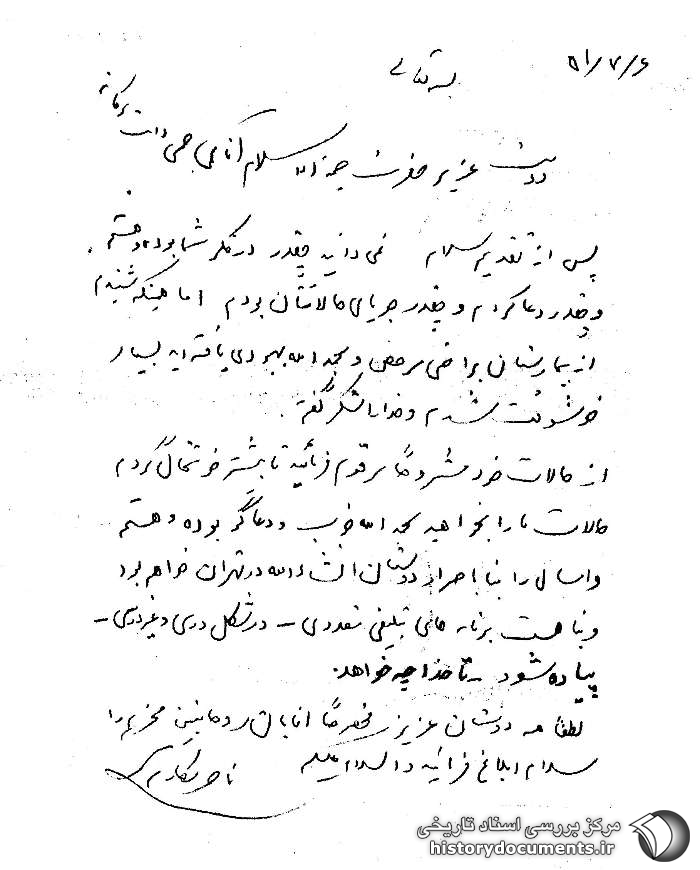 ۵۱/۷/۶
بسمه تعالی
دوست عزیز حضرت حجة الاسلام آقای حجی دامت برکاته
پس از تقدیم سلام نمی دانید چقدر در فکر شما بوده و هستم
و چقدر دعا کردم و چقدر جویای حالاتتان بودم اما همینکه شنیدم
از بیمارستان مرخص و بحمد الله بهبودی یافته اید بسیار
خوشوقت شدم و خدا را شکر گفتم.
از حالات خود مشروحاً مرقوم فرمائید تا بیشتر خوشحال گردم
حالات ما را بخواهید بحمد الله خوب و دعاگو بوده و هستم
و امسال را بنا باصرار دوستان انشاءالله در تهران خواهم بود
و بنا هست برنامه های تبلیغی متعددی – در شکل درسی و غیر درسی –
پیاده شود – تا خدا چه خواهد.
لطفا همه دوستان عزیز مخصوصاً آقایان روحانیین محترم را
سلام ابلاغ فرمائید والسلام علیکم
ناصر مکارم
مرکز بررسی اسناد تاریخی
historydocuments.ir